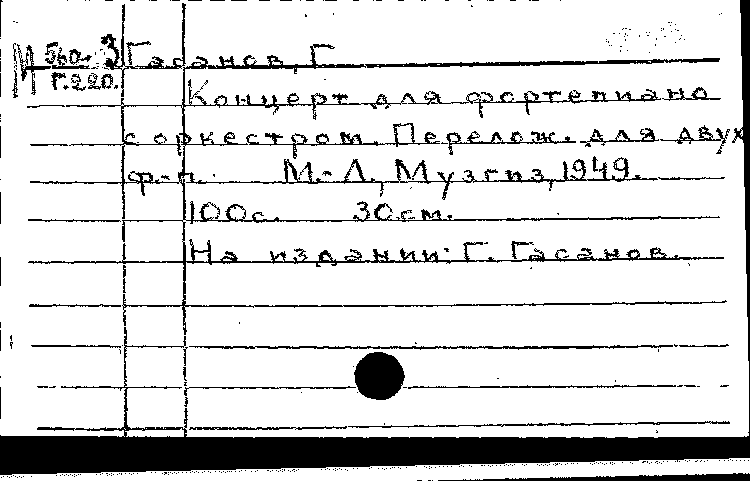 М 560-3 Гасанов, Г
Г.220.
Концерт для фортепиано
с оркестром. Перелож. для двух
ф.-п. М.-Л., Музгиз, 1949.
100с. 30см.
На издании: Г. Гасанов.